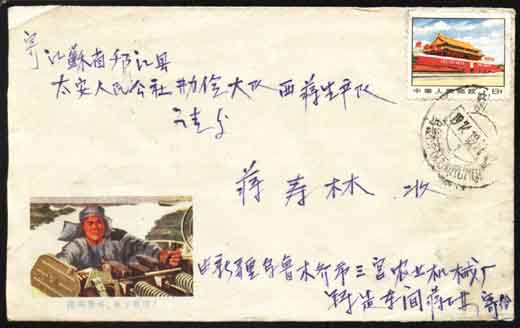 寄江蘇省邗江县
太安人民公社勤俭大队西蒋生产队
请交
蒋寿林 收
由新疆乌鲁木齐市三宫农业机械厂
铸造车间蒋 寄给
中国人民邮政
8分